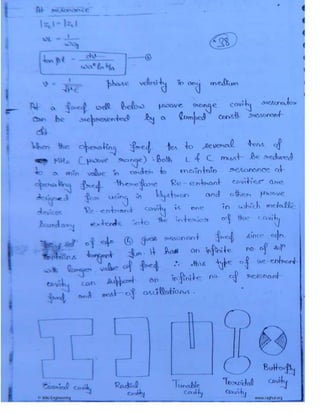 At resonance
|z₁| = |z₂|
38
tan βl = dv / wa² ln b/a
v = 1/√με phase velocity in any medium
At a freq well below μwave range cavity resonator
can be represented by a lumped const resonant
ckt
When the operating freq. to several tens of
MHz (μwave range). Both L & C must be reduced
to a min value in order to maintain resonance at
operating freq therefore Re-entrant cavities are
designed for using in klystron and other μwave
devices Re-entrant cavity is one in which metallic
boundary extends into the interior of the cavity
of eqn ⑥ gives resonant freq. since eqn
contains tangent fun. it has an infinite no of
with larger value of freq ∴ this type of re-entrant
cavity can support an infinite no of resonant
freq and oscillations.
Coaxial cavity
Radial cavity
Tunable cavity
Toroidal cavity
Butterfly cavity
Engineering